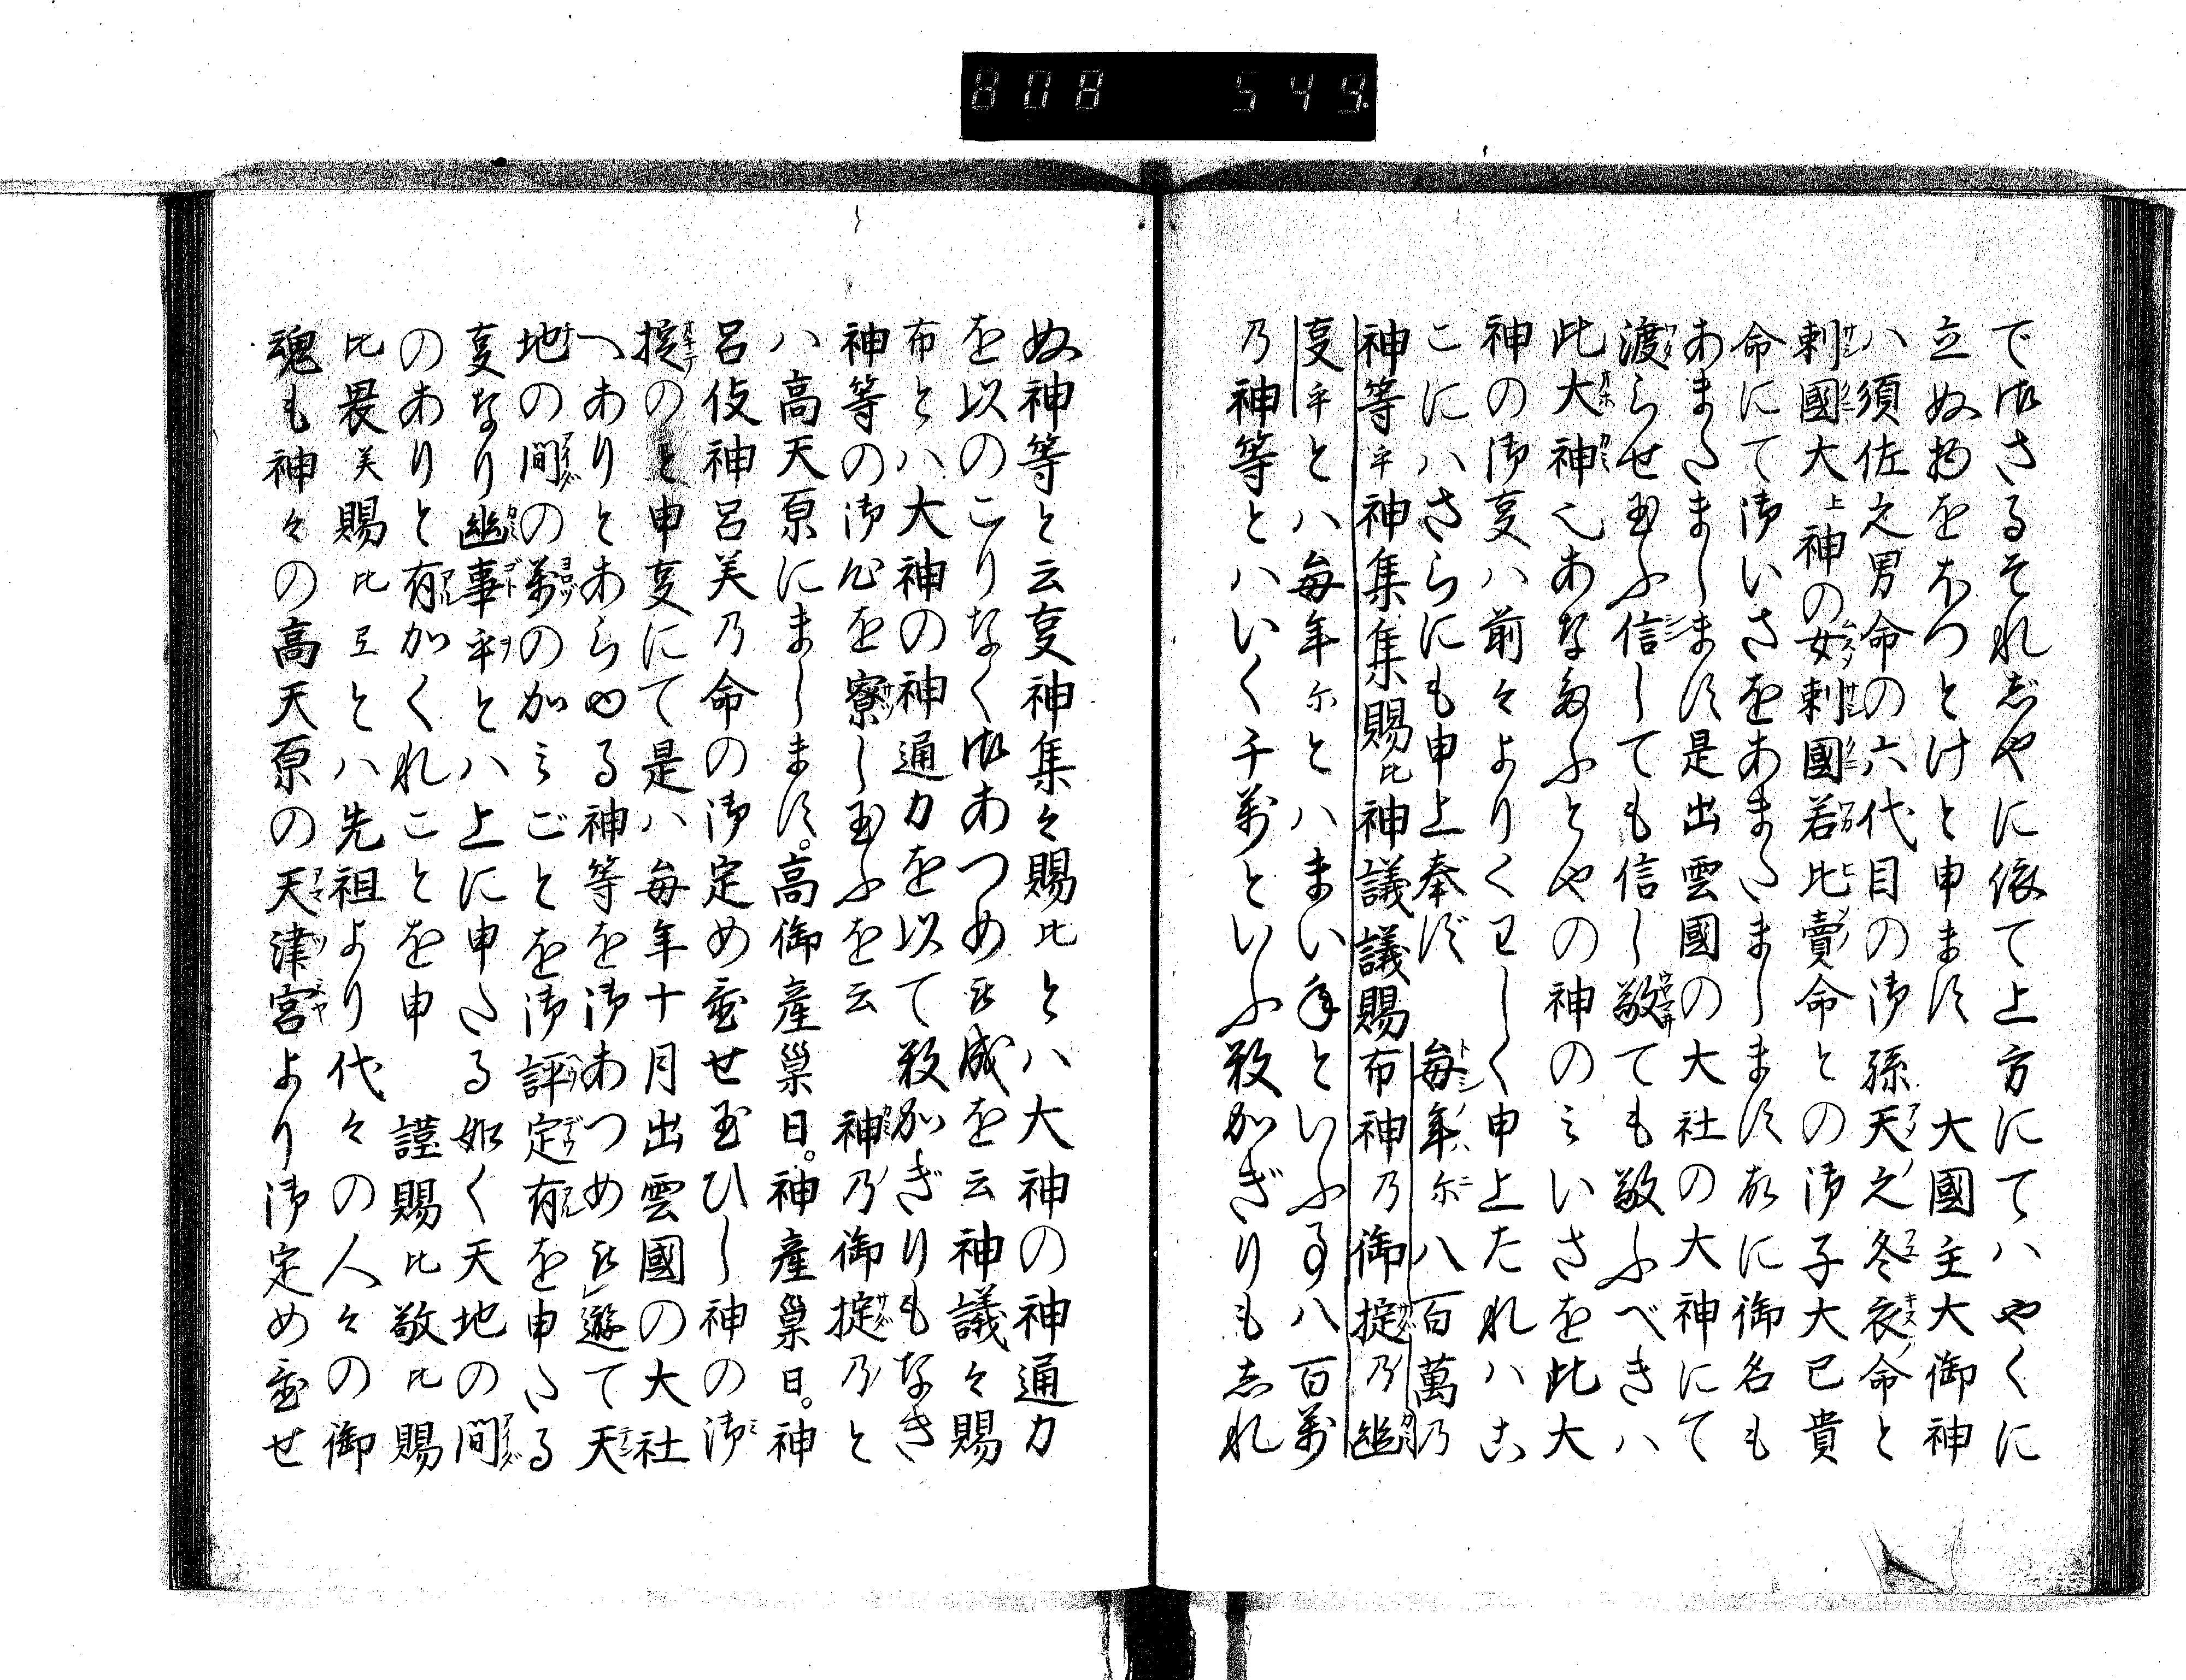 808 549.
でぬさるそれぢやに依て上方にてハやくに
立ぬ物をなつとけと申ます 大國主大御神
ハ須佐之男命の六代目の御孫天之冬衣命と
刺國大上神の女刺國若比賣命との御子大已貴
命にて御いさをあまたましますれに御名も
あまたまします是出雲國の大社の大神にて
渡らせ玉ふ信しても信し敬ても敬ふべきハ
此大神也あなたふとやの神のみいさを此大
神の御叓ハ前々よりくワしく申上たれハこ
こにハさらにも申上奉ず 毎年尓八百萬乃
神等乎神集集賜比神議議賜布神乃御掟乃幽
叓乎とハ毎年尓とハまい年といふ事八百萬
乃神等とハいく千萬といふ数かぎりもしれ
ぬ神等と云叓神集々賜比とハ大神の神通力
を以のこりなく御あつめ被成を云神議々賜
布とハ大神の神通力を以て数かぎりもなき
神等の御心を察し玉ふを云 神乃御掟乃と
ハ高天原にまします。高御産巣日。神産巣日。神
呂伎神呂美乃命の御定め置せ玉ひし神の御
掟のと申叓にて是ハ毎年十月出雲國の大社
へありとあらゆる神等を御あつめ被遊て天
地の間の萬のかみごとを御評定有を申たる
叓なり幽事乎とハ上に申たる如く天地の間
のありと有かくれことを申 謹賜比敬比賜
比畏美賜比弖とハ先祖より代々の人々の御
魂も神々の高天原の天津宮より御定め置せ